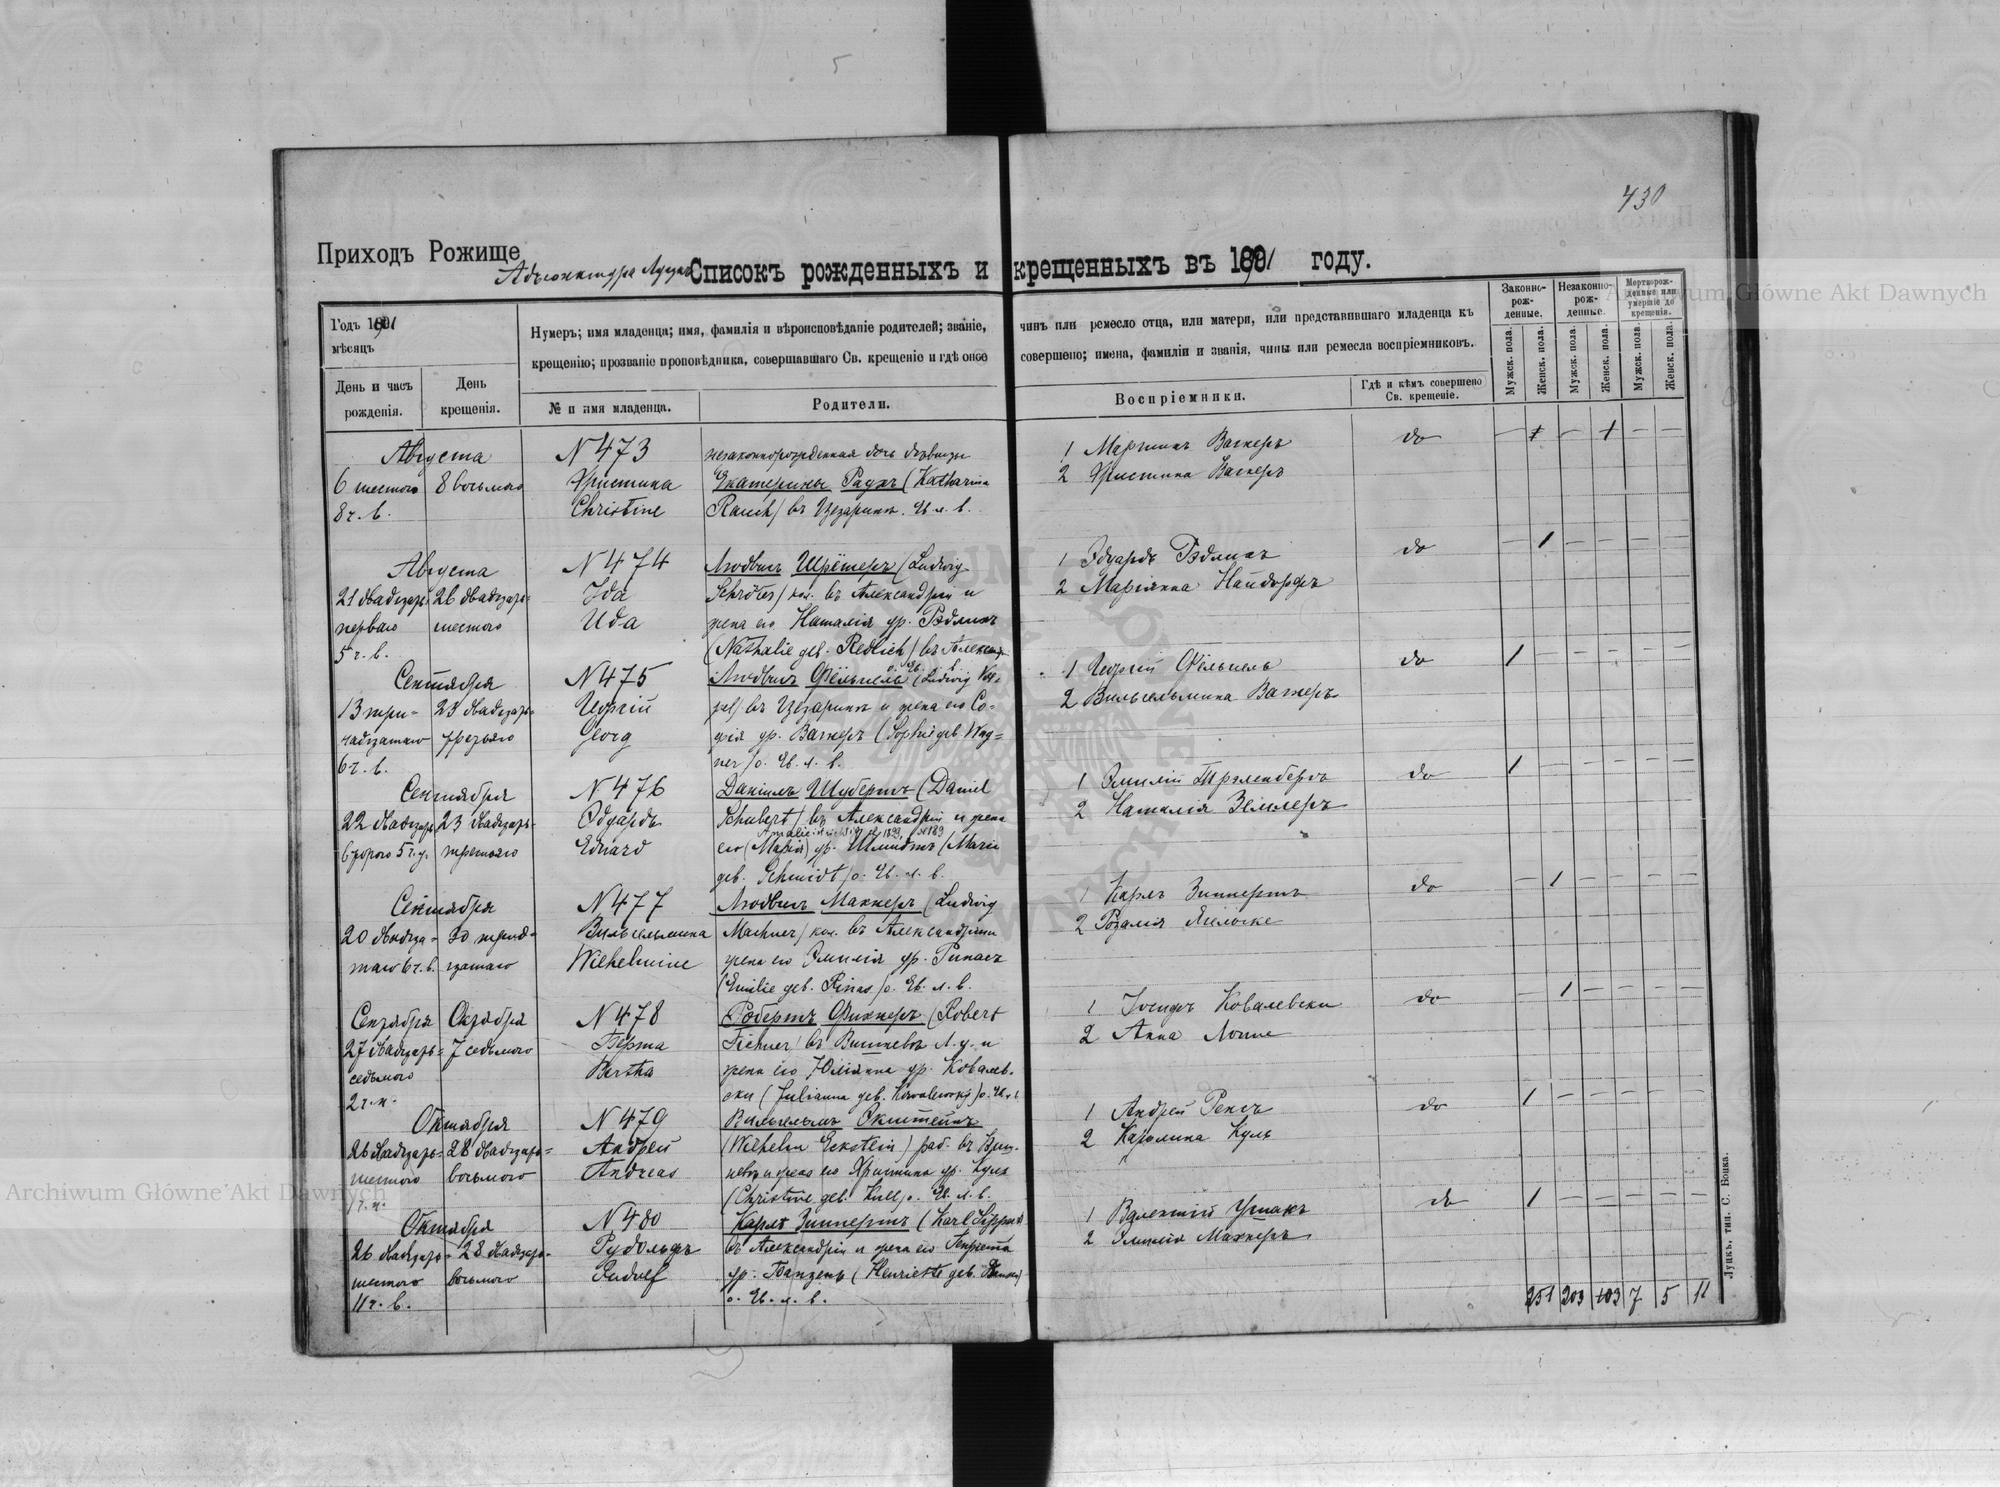 430
Приходъ Рожище
Адъюнктура Луцкъ
Списокъ рожденныхъ и крещенныхъ въ 1891 году.
Годъ 1891
мѣсяцъ
День и часъ рожденія.
День крещенія.
Нумеръ; имя младенца; имя, фамилія и вѣроисповѣданіе родителей; званіе, чинъ или ремесло отца, или матери, или представившаго младенца къ
крещенію; прозваніе проповѣдника, совершавшаго Св. крещеніе и гдѣ оное совершено; имена, фамиліи и званія, чины или ремесла воспріемниковъ.
№ и имя младенца.
Родители.
Воспріемники.
Гдѣ и кѣмъ совершено Св. крещеніе.
Законно-рож-денные.
Незаконно-рож-денные.
Мертворож-денные или умершіе до крещенія.
Мужск. пола.
Женск. пола.
Мужск. пола.
Женск. пола.
Мужск. пола.
Женск. пола.
Августа
6 шестого
8 ч. в.
8 восьмого
N 473
Христина
Christine
незаконнорожденная дочь дѣвицы
Екатерины Раухъ (Katharina
Rauch) въ Цезаринъ. Ев. л. в.
1 Мартинъ Вагнеръ
2 Христина Вагнеръ
do
Августа
21 двадцать
перваго
5 ч. в.
26 двадцать
шестого
N 474
Ида
Ida
Людвигъ Шрётеръ (Ludwig
Schröter) кол. въ Александріи и
жена его Наталія ур. Рэдлихъ
(Nathalie geb. Redlich) въ Александ.
о. Ев. л. в.
1 Эдуардъ Рэдлихъ
2 Маріянна Найдорфъ
do
Сентября
13 три-
надцатаго
6 ч. в.
23 двадцать
третьяго
N 475
Георгій
Georg
Людвигъ Фёльпель (Ludwig Völ-
pel) въ Цезаринъ и жена его Со-
фія ур. Вагнеръ (Sophie geb. Wag=
ner) о. Ев. л. в.
1 Георгій Фёльпель
2 Вильгельмина Вагнеръ
do
Сентября
22 двадцать
второго 5 ч. у.
23 двадцать
третьяго
N 476
Эдуардъ
Eduard
Даніилъ Шубертъ (Daniel
Schubert) въ Александріи и жена
его (Марія) ур. Шмидтъ (Marie
geb. Schmidt) о. Ев. л. в.
2 Наталія
do
Сентября
20 двадца-
таго 6 ч. в.
30 трид-
цатаго
N 477
Вильгельмина
Wilhelmine
Людвигъ Махнеръ (Ludwig
Machner) кол. въ Александріи
жена его Эмилія ур. Ринасъ
(Emilie geb. Rinas) о. Ев. л. в.
1 Карлъ Зиппертъ
2 Розалія
do
Сентября
27 двадцать
седьмого
2 ч. н.
Октября
7 седьмого
N 478
Берта
Bertha
Робертъ Фихнеръ (Robert
Fichner) въ Вишневъ Л. у. и
жена его Юліянна ур. Ковалев-
ски (Julianna geb. Kowalewski) о. Ев. л.
1 Іосифъ Ковалевски
2 Анна
do
Октября
26 двадцать
шестого
1 ч. н.
28 двадцать
восьмого
N 479
Андрей
Andreas
Вильгельмъ Экштейнъ
(Wilhelm Eckstein) раб. въ Виш-
невъ и жена его Христина ур. Куль
(Christine geb. Kull) о. Ев. л. в.
1 Андрей
2 Каролина Куль
do
Октября
26 двадцать
шестого
11 ч. в.
28 двадцать
восьмого
N 480
Рудольфъ
Rudolf
Карлъ Зиппертъ (Karl Sippert)
въ Александріи и жена его Генріетта
ур. (Henriette geb.
о. Ев. л. в.
1 Валентій
2 Эмилія Махнеръ
do
251 203 103 7 5 11
Луцкъ, тип. С. Бонка.
Archiwum Główne Akt Dawnych
Archiwum Główne Akt Dawnych